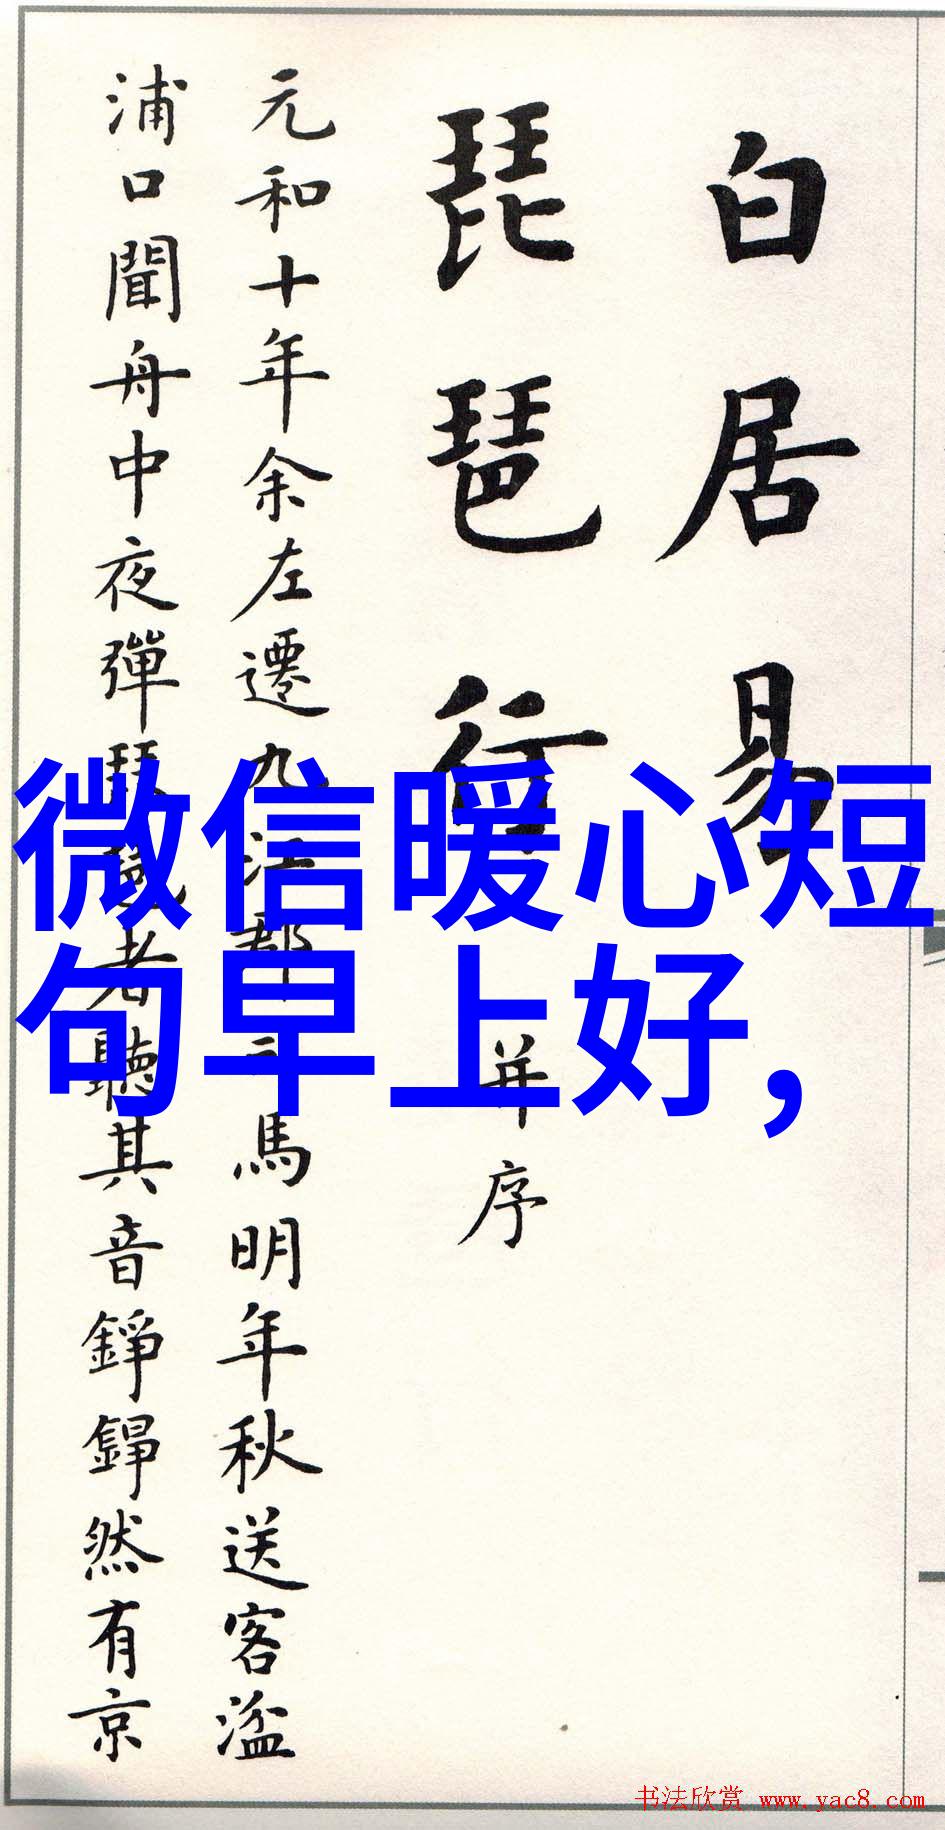 白居易
琵琶行
并序
元和十年余左遷九江郡馬明年秋送客湓
浦口聞舟中夜彈琵琶者聽其音錚錚然有京
微信暖心短
句早上好，
书法欣赏 www.yac8.com